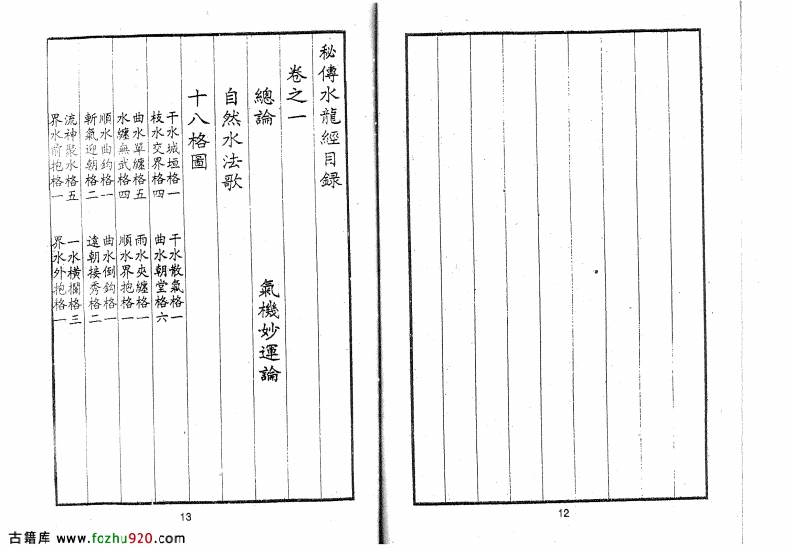 秘傳水龍經目錄
卷之一
總論 氣機妙運論
自然水法歌
十八格圖
干水城垣格一 干水散氣格一
枝水交界格四 曲水朝堂格六
曲水單纏格五 雨水夾纏格一
水纏無武格四 順水界抱格一
順水曲鈎格一 曲水倒鈎格一
斬氣迎朝格二 遠朝接秀格二
流神聚水格五 一水橫攔格三
界水前抱格一 界水外抱格一
13
12
古籍库 www.fozhu920.com